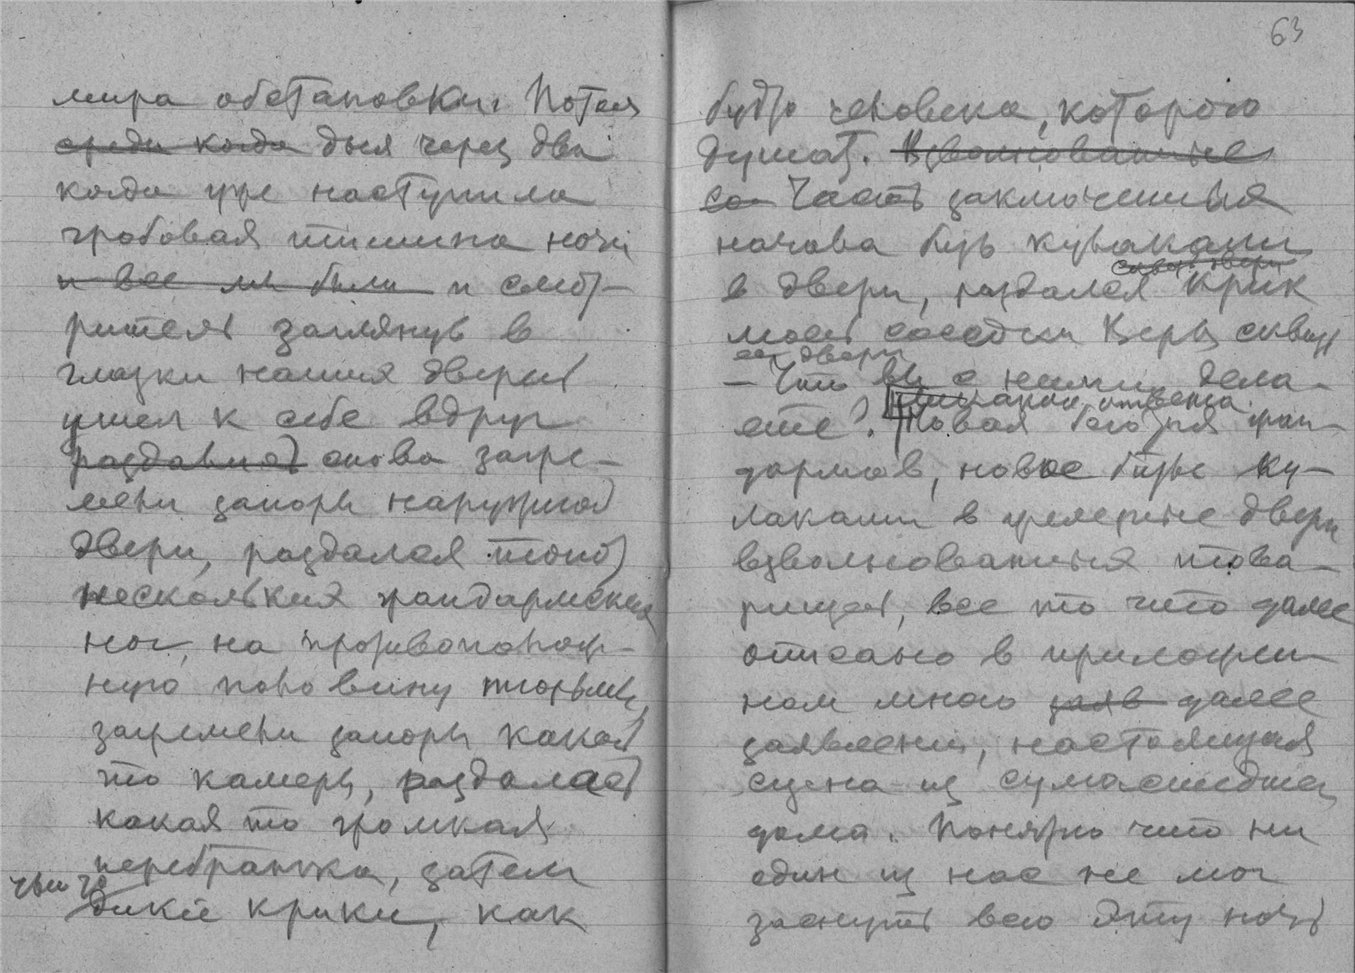 63
мира обстановки. Потом
среди когда дня через два
когда уже наступила
гробовая тишина ночи
и все мы были и смот-
ритель заглянув в
глазки наших дверей
ушел к себе вдруг
раздавшей снова загре-
мели запоры наружной
двери, раздался топот
нескольких жандармских
ног, на противополож-
ную половину тюрьмы,
загремели запоры какой
то камеры, раздалась
какая то громкая
перебранка, затем
чьи то
дикие крики, как
будто человека, которого
душат. Взволнованные
со Часть заключенных
начала бить кулаками
в двери, раздался крик
моей соседки Веры сквозь
ее двери
— Что вы с ними дела-
ете? Новая беготня жан-
дармов, новое битье ку-
лаками в железные двери
взволнованных това-
рищей, все то что далее
описано в приложен-
ном мною заяв далее
заявлении, настоящая
сцена из сумасшедшего
дома. Понятно что ни
один из нас не мог
заснуть всю эту ночь